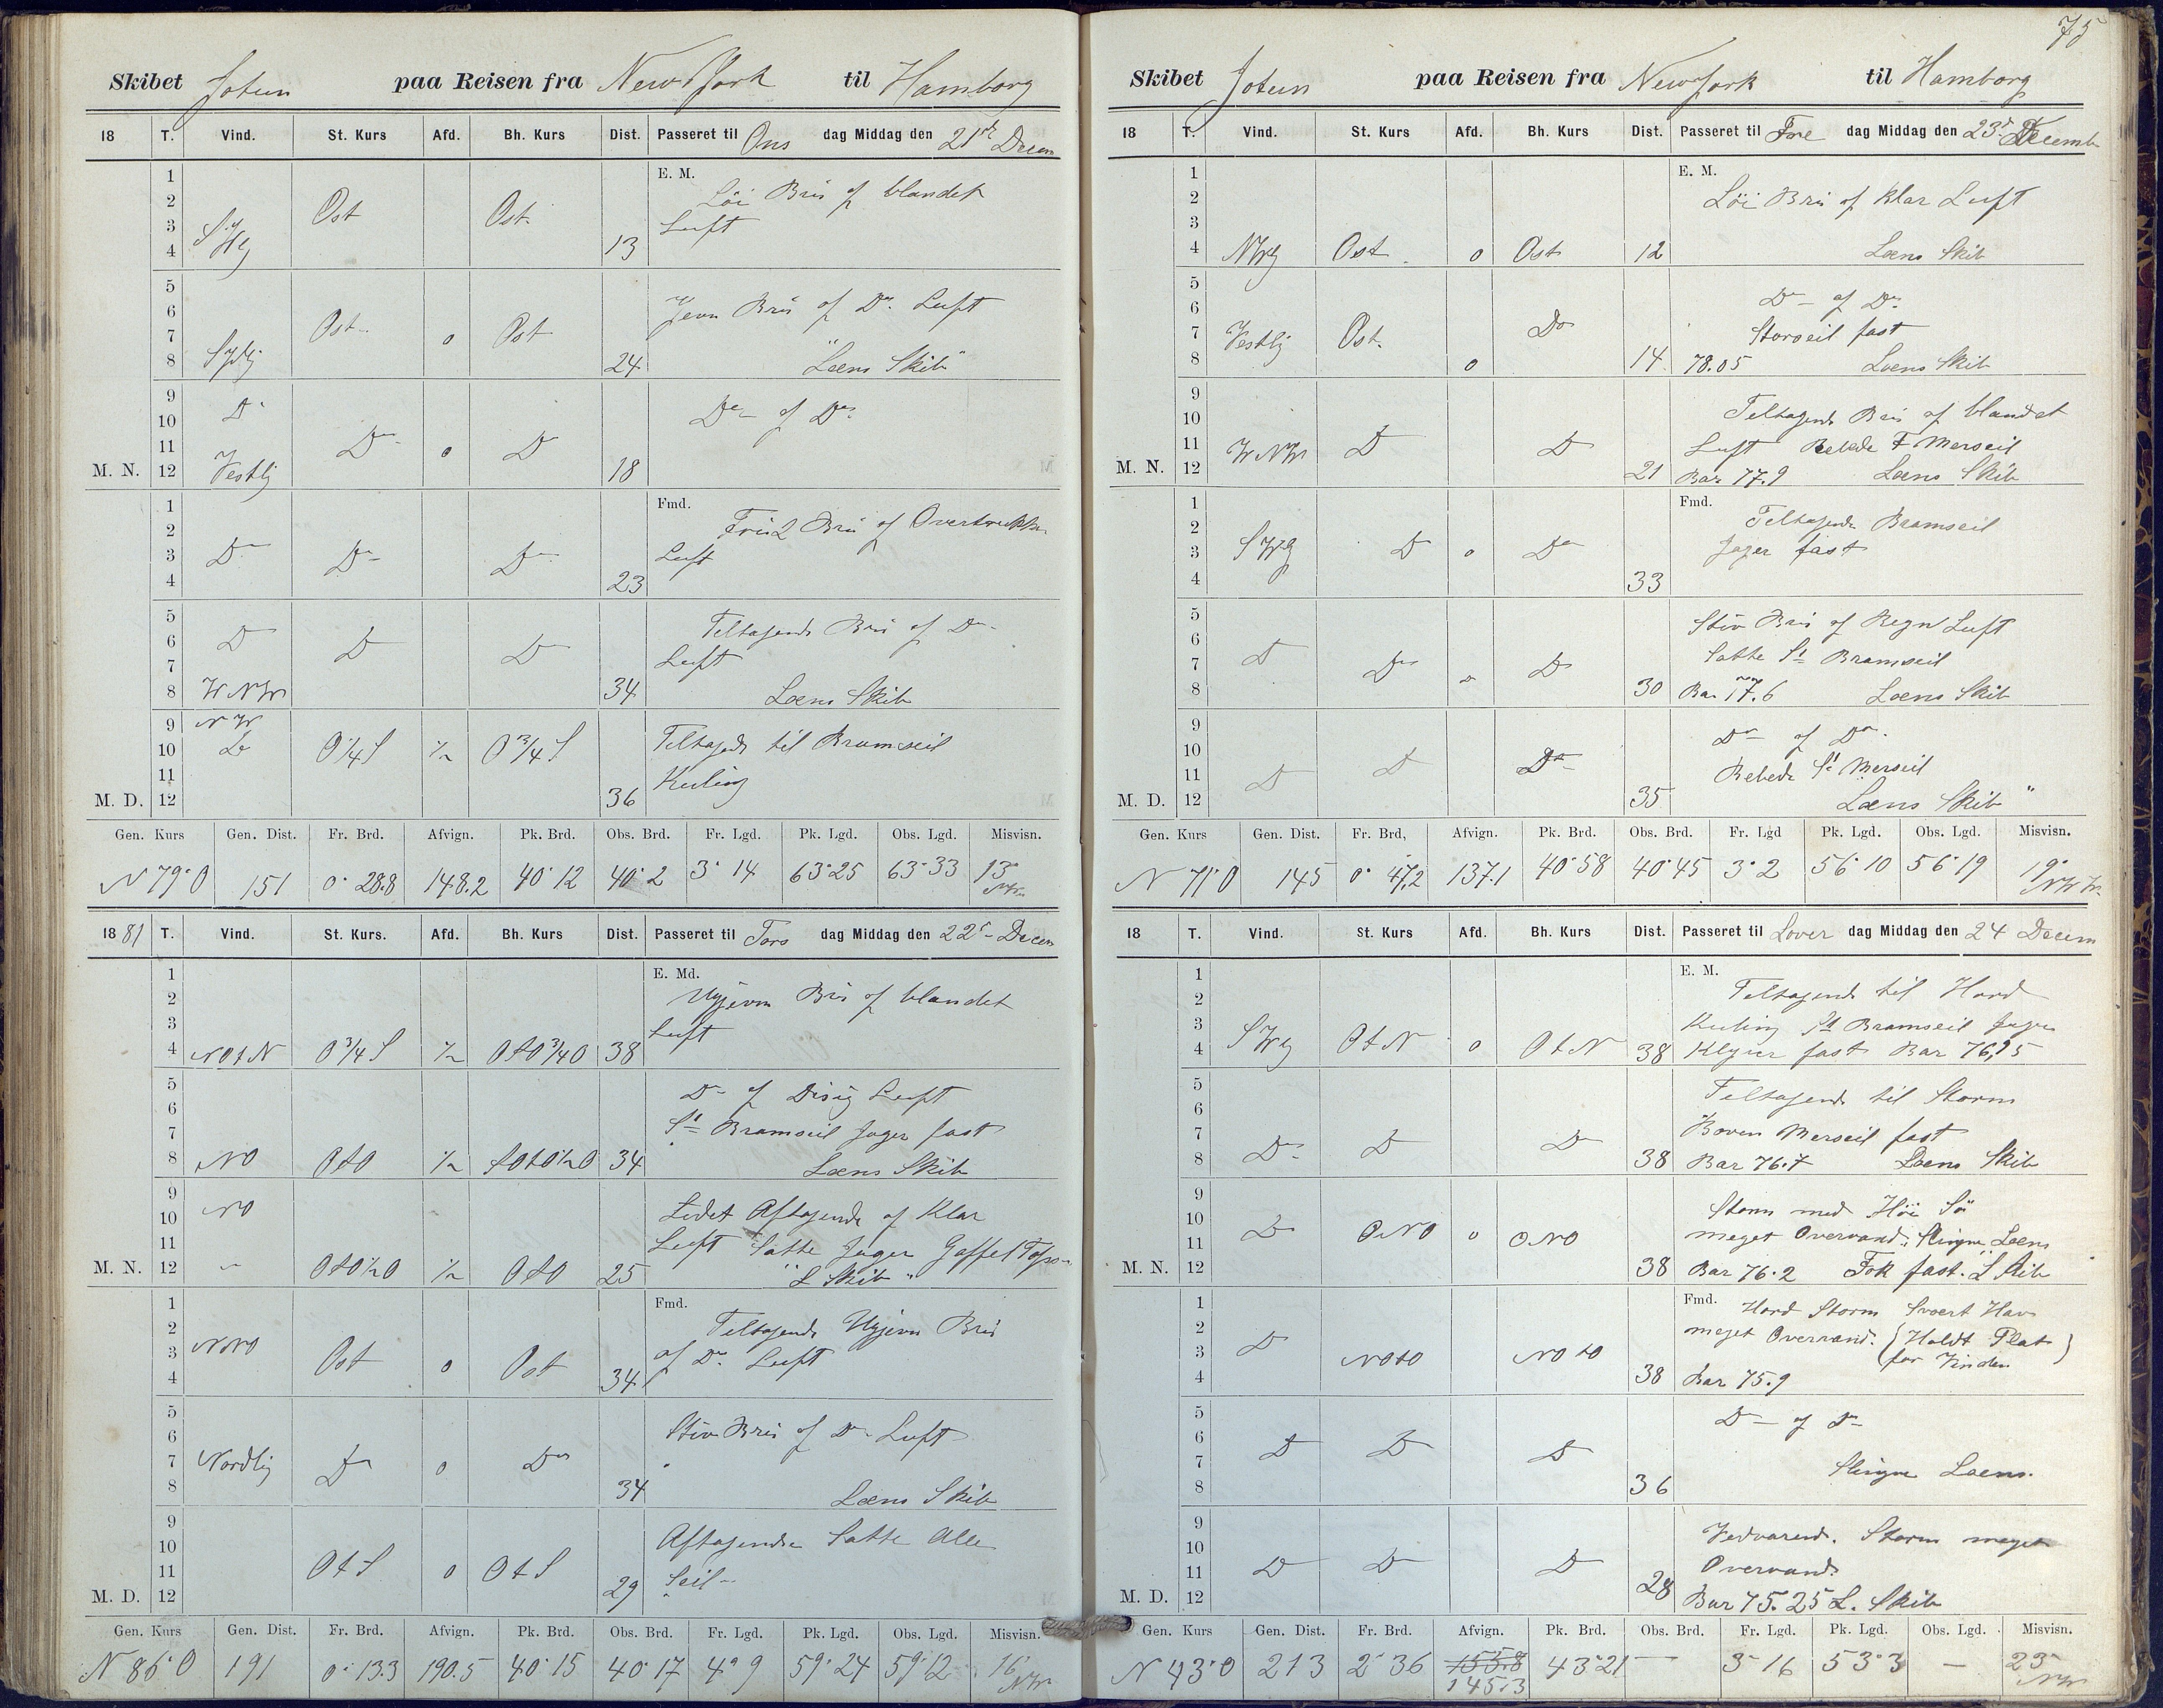 Skibet Jotun paa Reisen fra New York til Hamborg
18 T. Vind. St. Kurs Afd. Bh. Kurs Dist. Passeret til Ons dag Middag den 21de Decem
E. M.
1 2 3 4 Ost Ost 13 Löi Bris af blandet
Luft
5 6 7 8 Sydlig Ost o Ost 24 Jevn Bris af Do. Luft
"Læns Skib"
9 10 11 12 M. N. Do Vestlig Do o Do 18 Do af Do
Fmd.
1 2 3 4 Do Do Do 23 Frisk Bris af Overtrukken
Luft
5 6 7 8 D WNW D D 34 Teltagende Bris af Do
Luft
Læns Skib
9 10 11 12 M. D. NW O 1/4 S 1/2 O 3/4 S 36 Teltagende til Bramseil
Kuling
Gen. Kurs Gen. Dist. Fr. Brd. Afvign. Pk. Brd. Obs. Brd. Fr. Lgd. Pk. Lgd. Obs. Lgd. Misvisn.
N 79° O 151 0° 28.8 148.2 40° 12 40° 2 3° 14 63° 25 63° 33 13°
1881 T. Vind. St. Kurs. Afd. Bh. Kurs Dist. Passeret til Tors dag Middag den 22de Decem
E. Md.
1 2 3 4 NOtN O 3/4 S 1/2 OtO 3/4 O 38 Ujevn Bris af blandet
Luft
5 6 7 8 NO OtO 1/2 tOtO 1/2 O 34 Do af Disig Luft
St Bramseil Jager fast
Læns Skib
9 10 11 12 M. N. NO OtO 1/2 O 1/2 OtO 25 Lidet Aftagende af Klar
Luft Satte Jager Gaffel Tops
"L Skib"
Fmd.
1 2 3 4 NNO Ost o Ost 34 Teltagende Ujevn Bris
af Do Luft
5 6 7 8 Nordlig Do o Do 34 Stiv Bris af Do Luft
Læns Skib
9 10 11 12 M. D. OtS o OtS 29 Aftagende Satte Alle
Seil
Gen. Kurs Gen. Dist. Fr. Brd. Afvign. Pk. Brd. Obs. Brd. Fr. Lgd. Pk. Lgd. Obs. Lgd. Misvisn.
N 86° O 191 0° 13.3 190.5 40° 15 40° 17 4° 9 59° 24 59° 12 16°
75
Skibet Jotun paa Reisen fra New York til Hamborg
18 T. Vind. St. Kurs Afd. Bh. Kurs Dist. Passeret til Fre dag Middag den 23de Decemb
E. M.
1 2 3 4 NWlg Ost o Ost 12 Löi Bris af Klar Luft
Læns Skib
5 6 7 8 Vestlig Ost o Do 14 Do af Do
Storseil fast
78.05 Læns Skib
9 10 11 12 M. N. WNW D D 21 Teltagende Bris af blandet
Luft Rebede F Merseil
Bar 77.9 Læns Skib
Fmd.
1 2 3 4 SWlg D o Do 33 Teltagende Bramseil
Jager fast
5 6 7 8 D Do o Do 30 Stiv Bris af Regn Luft
Satte St Bramseil
Bar 77.6 Læns Skib
9 10 11 12 M. D. D D Do 35 Do af Do
Rebede St Merseil
Læns Skib"
Gen. Kurs Gen. Dist. Fr. Brd, Afvign. Pk. Brd. Obs. Brd. Fr. Lgd Pk. Lgd. Obs. Lgd. Misvisn.
N 71° O 145 0° 47,2 137.1 40° 58 40° 45 3° 2 56° 10 56° 19 19°
18 T. Vind. St. Kurs Afd. Bh. Kurs Dist. Passeret til Lover dag Middag den 24 Decem
E. M.
1 2 3 4 SWlg OtN o OtN 38 Teltagende til Hard
Kuling St Bramseil Jager
Klyver fast Bar 76,95
5 6 7 8 Do D D 38 Teltagende til Storm
Boven Merseil fast
Bar 76.7 Læns Skib
9 10 11 12 M. N. D ONO o ONO 38 Storm med Höi Sö
meget Overvand. Slingre Læns
Bar 76.2 Fok fast. L Skib
Fmd.
1 2 3 4 D NOtO NOtO 38 Hard Storm Svoert Hav
meget Overvand. (Holdt Plat
for Vinden)
Bar 75.9
5 6 7 8 D D D 36 Do af Do
Slingre Læns.
9 10 11 12 M. D. D D D 28 Vedvarende Storm meget
Overvand
Bar 75.25 L. Skib
Gen. Kurs Gen. Dist. Fr. Brd. Afvign. Pk. Brd. Obs. Brd. Fr. Lgd. Pk. Lgd. Obs. Lgd. Misvisn.
N 43° O 213 2° 36 155.8 145.3 43° 21 — 3° 16 53° 3 — 23°